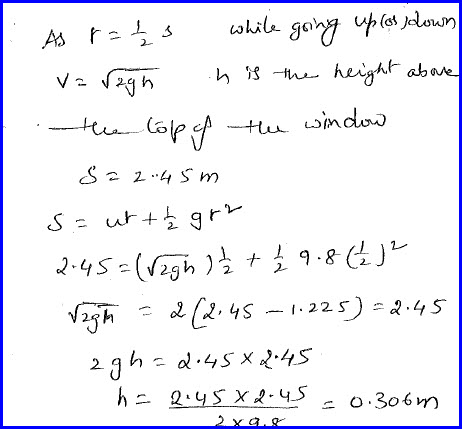 As r = 1/2 s while going up (or) down
v = √2gh h is the height above
the top of the window
S = 2.45 m
S = ut + 1/2 gr²
2.45 = (√2gh) 1/2 + 1/2 9.8 (1/2)²
√2gh = 2(2.45 - 1.225) = 2.45
2gh = 2.45 × 2.45
h = 2.45 × 2.45 / 2 × 9.8 = 0.306m